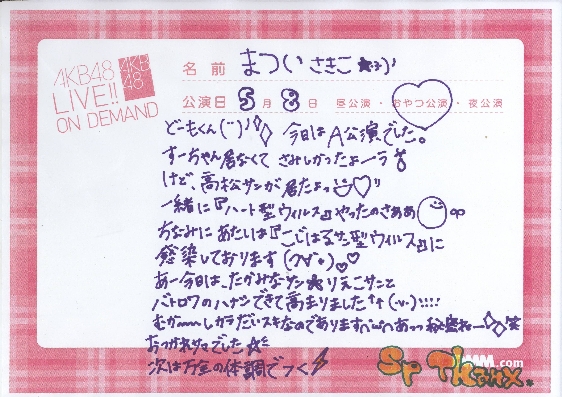 AKB48
LIVE!!
ON DEMAND
AKB
48
名前 まつい さきこ
公演日 5月8日 昼公演・おやつ公演・夜公演
どーもくん 今日はA公演でした。
すーちゃん居なくて さみしかったよーう
けど、高松サンが居たよっ
一緒に『ハート型ウイルス』やったのさぁぁ
ちなみにあたしは『こじはるサン型ウイルス』に
感染しております
あー今日は、たかみなサン☆りえこサンと
バトロワのハナシできて高まりました
むかーしからだいスキなのであります へあっ 秘密ねー
おつかれタマでした☆
次は万全の体調でつく
Sp Thanx.
DMM.com